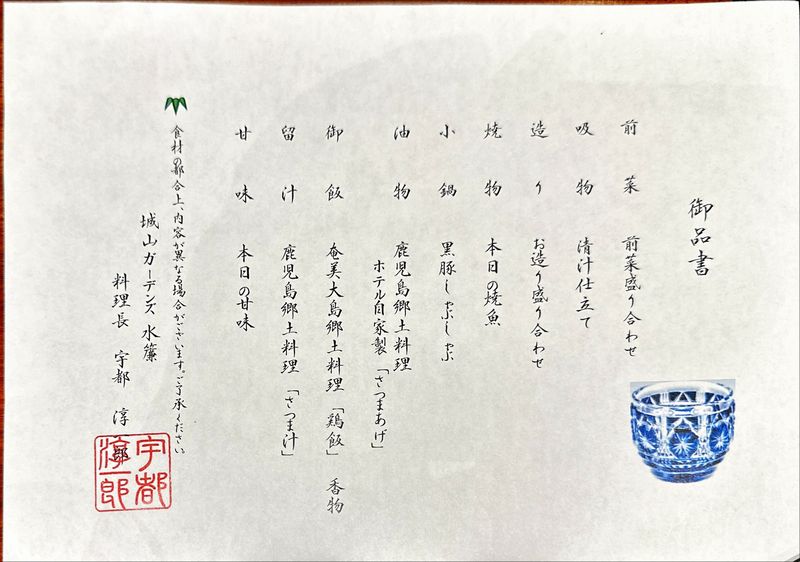 御品書
前菜 前菜盛り合わせ
吸物 清汁仕立て
造り お造り盛り合わせ
焼物 本日の焼魚
小鍋 黒豚しゃぶしゃぶ
油物 鹿児島郷土料理
ホテル自家製「さつまあげ」
御飯 奄美大島郷土料理「鶏飯」 香物
留汁 鹿児島郷土料理「さつま汁」
甘味 本日の甘味
食材の都合上、内容が異なる場合がございます。ご了承ください
城山ガーデンズ 水簾
料理長 宇都 淳一郎
宇都
淳一郎